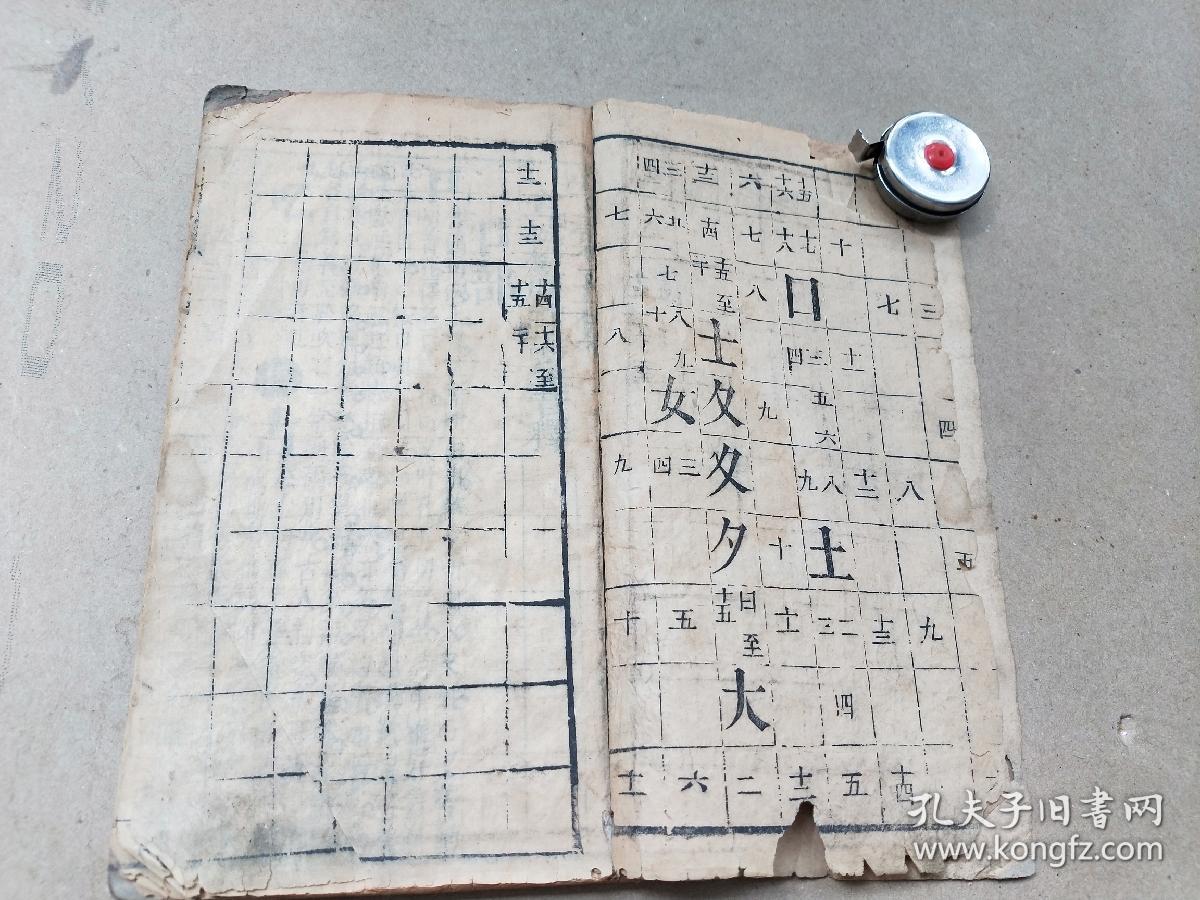 三
四
五
七
八
九
十
十一
十二
十三
十四
十五
十六
十七
十八
口
三
四
五
六
八
九
土
二
三
四
五
六
七
八
九
十
十一
十二
十三
十四
十五至
士
夂
夊
夕
至
十五
大
二
三
四
六
七
八
十
九
女
三
四
五
六
七
八
九
十
十一
十二
十三
十四
十五
十六至
孔夫子旧書网
www.kongfz.com